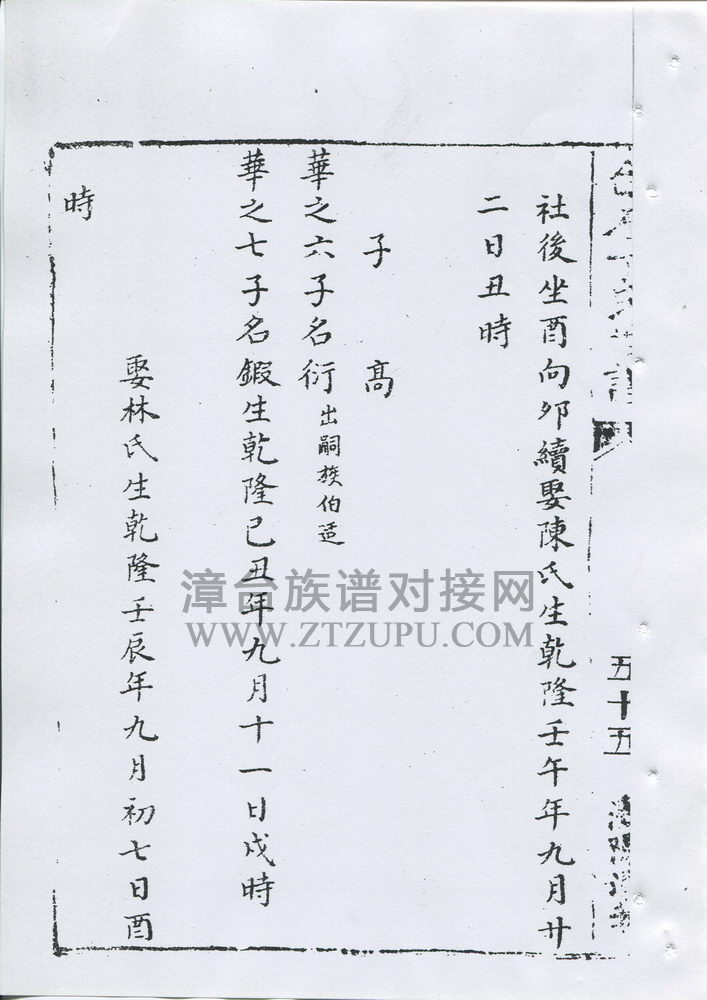 五十五
社後坐酉向卯續娶陳氏生乾隆壬午年九月廿
二日丑時
子 高
華之六子名衍出嗣族伯适
華之七子名鍜生乾隆己丑年九月十一日戌時
娶林氏生乾隆壬辰年九月初七日酉
時
漳台族谱对接网
WWW.ZTZUPU.COM